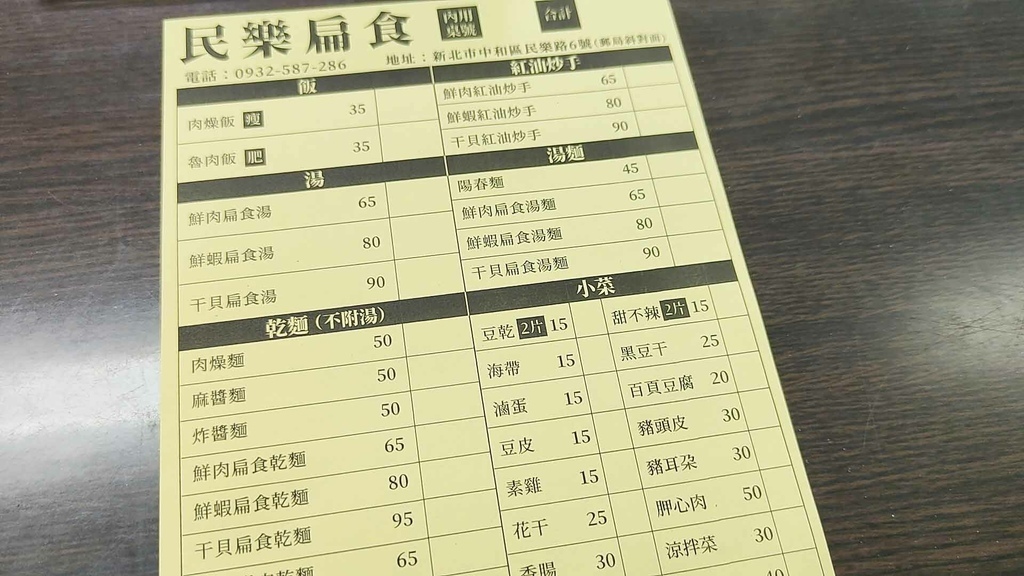 民樂扁食 內用桌號 合計
電話：0932-587-286 地址：新北市中和區民樂路6號(郵局斜對面)
飯
肉燥飯 瘦 35
魯肉飯 肥 35
湯
鮮肉扁食湯 65
鮮蝦扁食湯 80
干貝扁食湯 90
乾麵（不附湯）
肉燥麵 50
麻醬麵 50
炸醬麵 50
鮮肉扁食乾麵 65
鮮蝦扁食乾麵 80
干貝扁食乾麵 95
乾麵 65
紅油炒手
鮮肉紅油炒手 65
鮮蝦紅油炒手 80
干貝紅油炒手 90
湯麵
陽春麵 45
鮮肉扁食湯麵 65
鮮蝦扁食湯麵 80
干貝扁食湯麵 90
小菜
豆乾 2片 15 甜不辣 2片 15
海帶 15 黑豆干 25
滷蛋 15 百頁豆腐 20
豆皮 15 豬頭皮 30
素雞 15 豬耳朶 30
花干 25 胛心肉 50
香腸 30 涼拌菜 30
40